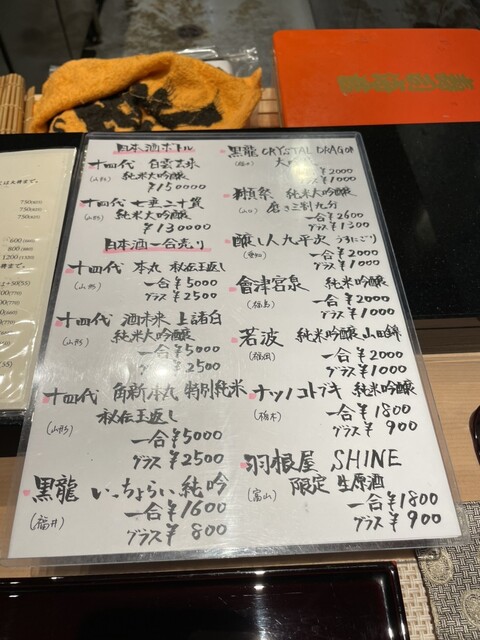 日本酒ボトル
十四代 白雲去来
(山形) 純米大吟醸
¥150000
十四代 七垂二十貫
(山形) 純米大吟醸
¥130000
日本酒一合売り
十四代 本丸 秘伝玉返し
(山形) 一合¥5000
グラス¥2500
十四代 酒未来 上諸白
(山形) 純米大吟醸
一合¥5000
グラス¥2500
十四代 角新本丸 特別純米
(山形) 秘伝玉返し
一合¥5000
グラス¥2500
黒龍 いっちょらい 純吟
(福井) 一合¥1600
グラス¥800
黒龍 CRYSTAL DRAGON
(福井) 大吟醸
¥2000
¥1000
獺祭 純米大吟醸
(山口) 磨き三割九分
一合¥2600
グラス¥1300
醸し人九平次 うすにごり
(愛知) 一合¥2000
グラス¥1000
會津宮泉 純米吟醸
(福島) 一合¥2000
グラス¥1000
若波 純米吟醸 山田錦
(福岡) 一合¥2000
グラス¥1000
ナツノコトブキ 純米吟醸
(栃木) 一合¥1800
グラス¥900
羽根屋 SHINE
(富山) 限定 生原酒
一合¥1800
グラス¥900